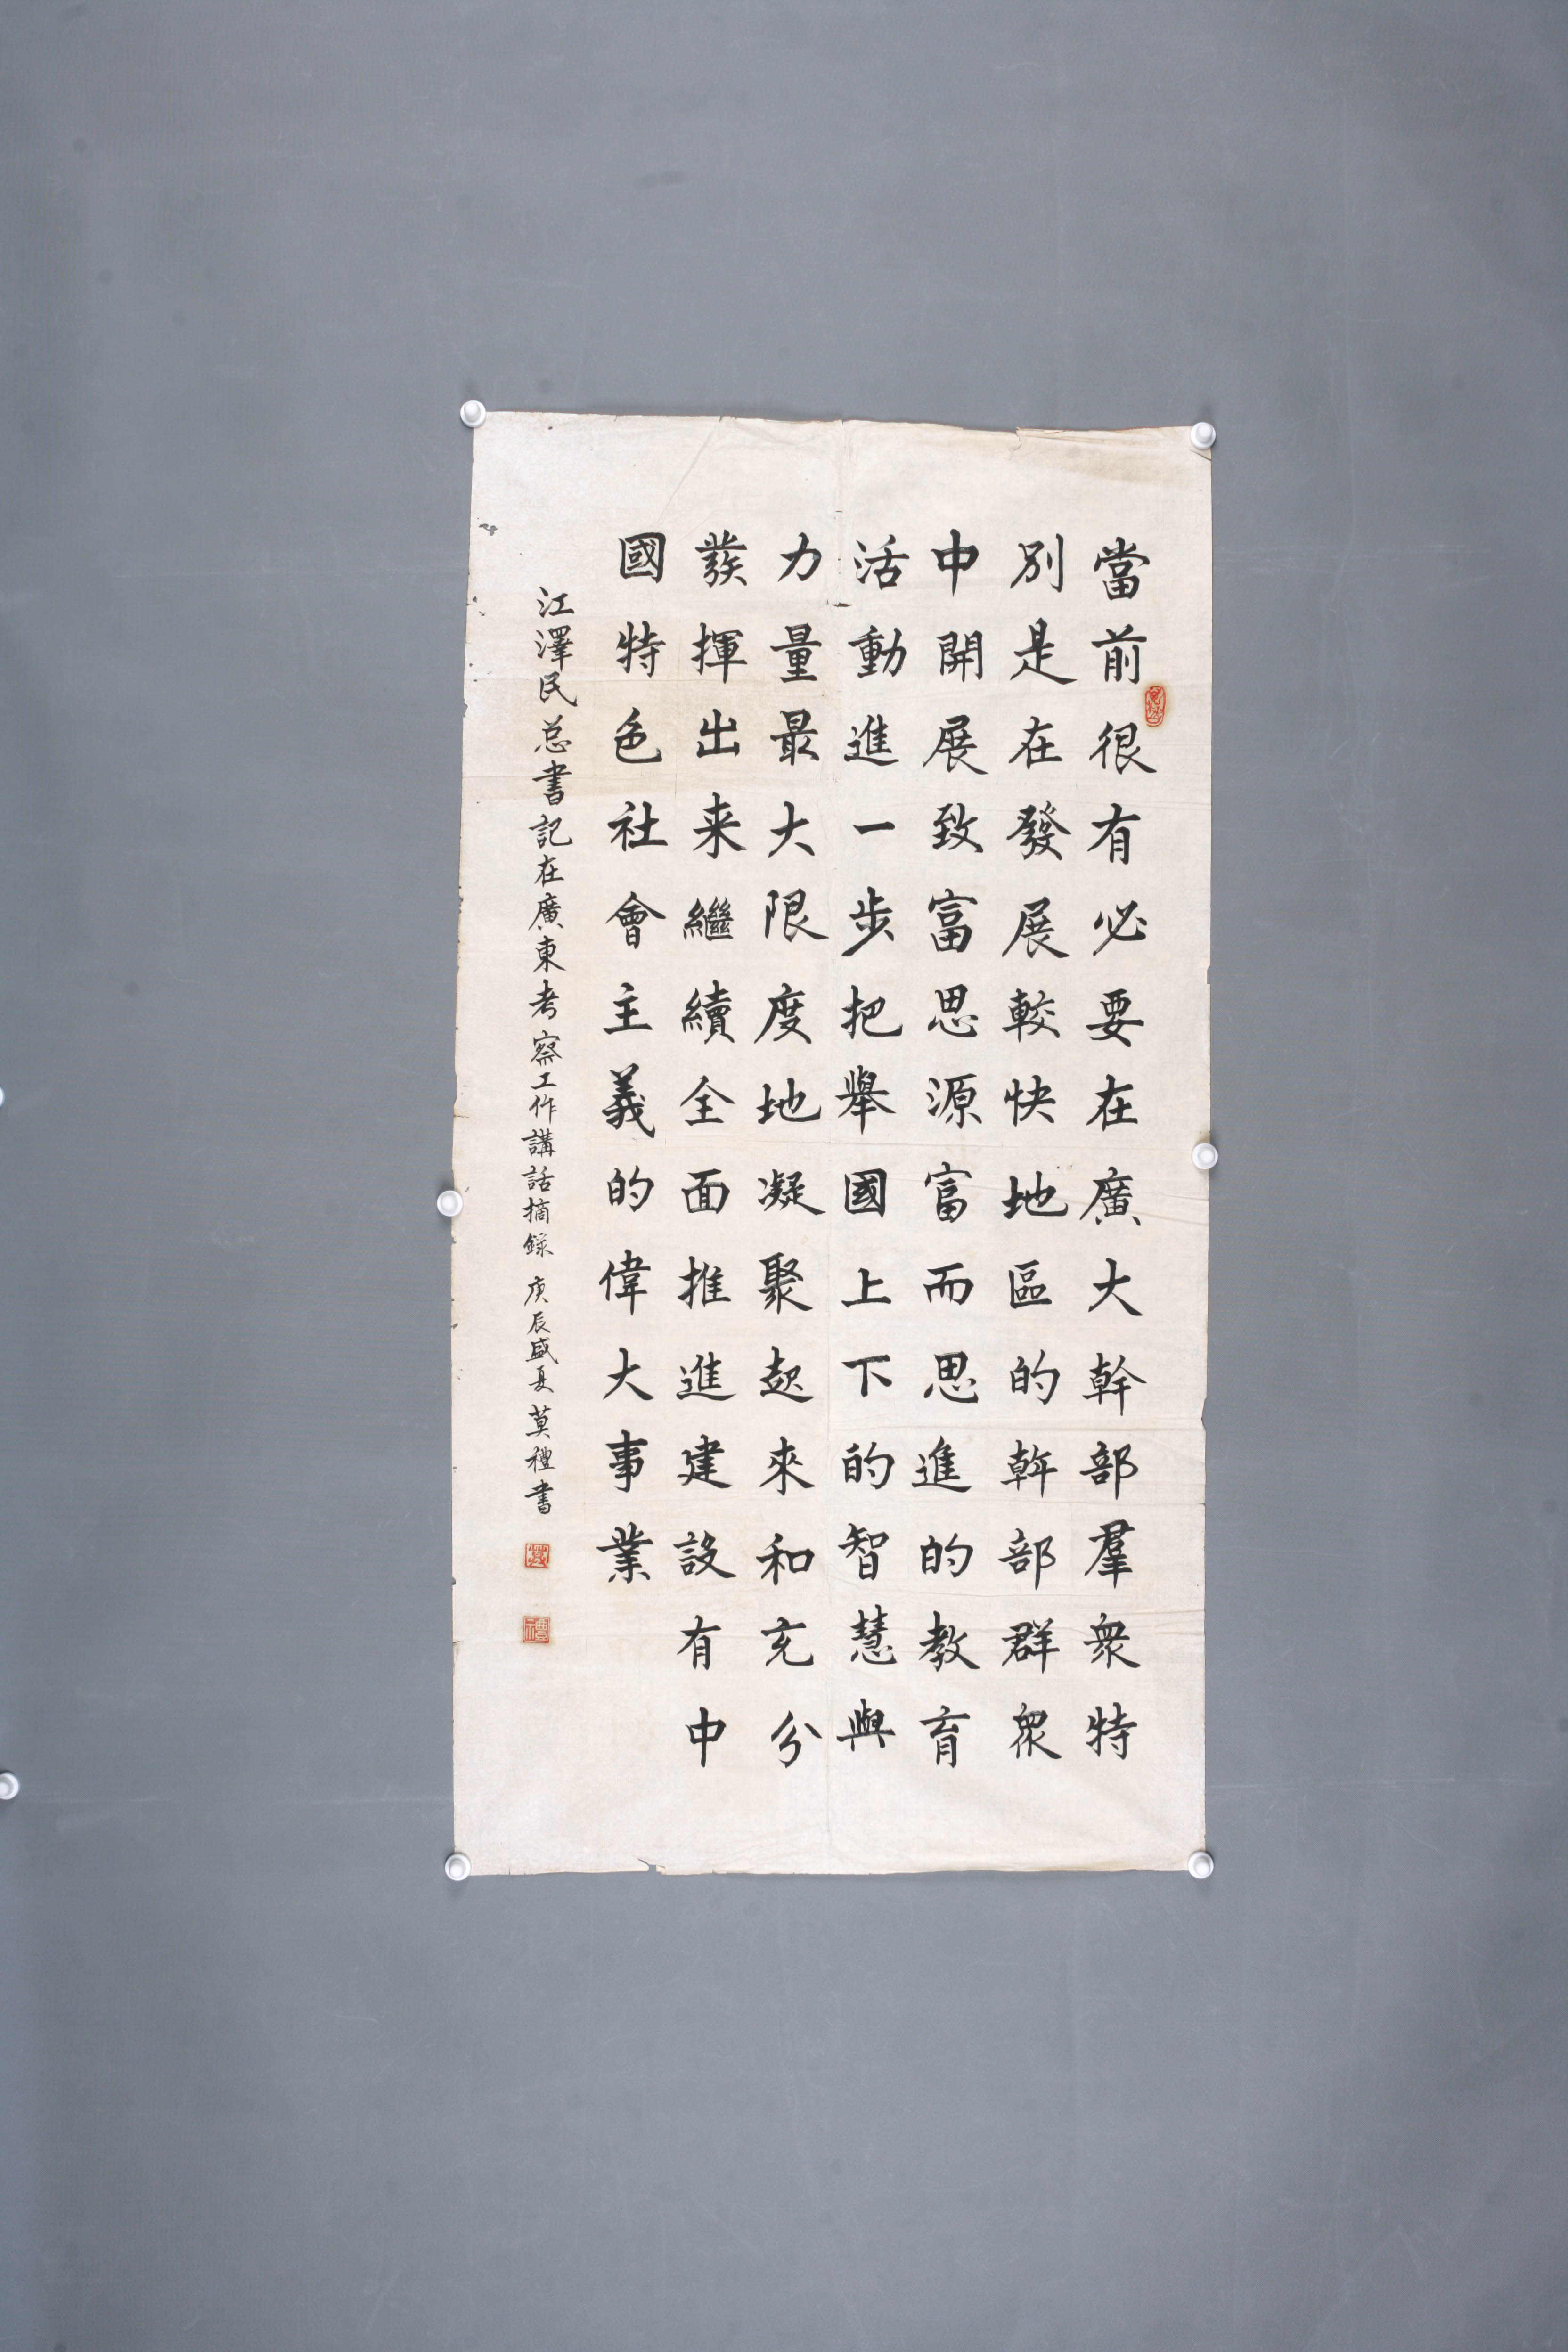 當前很有必要在廣大幹部羣衆特
別是在發展較快地區的幹部群衆
中開展致富思源富而思進的教育
活動進一步把舉國上下的智慧與
力量最大限度地凝聚起來和充分
發揮出来繼續全面推進建設有中
國特色社會主義的偉大事業
江澤民总書記在廣東考察工作講話摘錄 庚辰盛夏 莫禮書